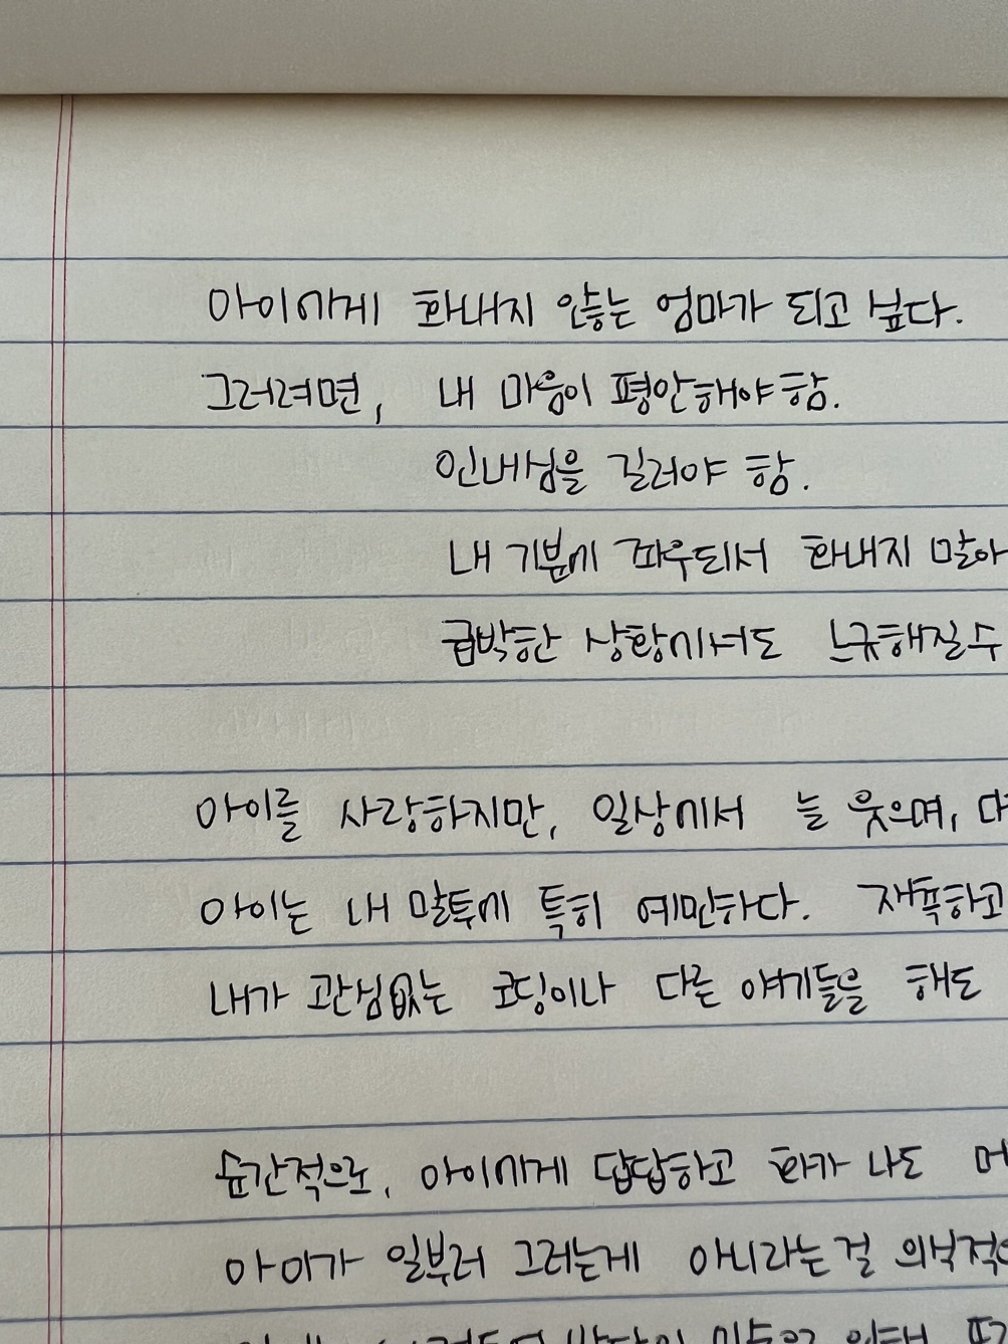 아이에게 화내지 않는 엄마가 되고 싶다.
그러려면, 내 마음이 평안해야 함.
인내심을 길러야 함.
내 기분에 좌우되서 화내지 말아
급박한 상황에서도 느긋해질수
아이를 사랑하지만, 일상에서 늘 웃으며,
아이는 내 말투에 특히 예민하다.
내가 관심없는 코딩이나 다른 얘기들을 해도
순간적으로, 아이에게 답답하고 화가 나도
아이가 일부러 그러는게 아니라는걸